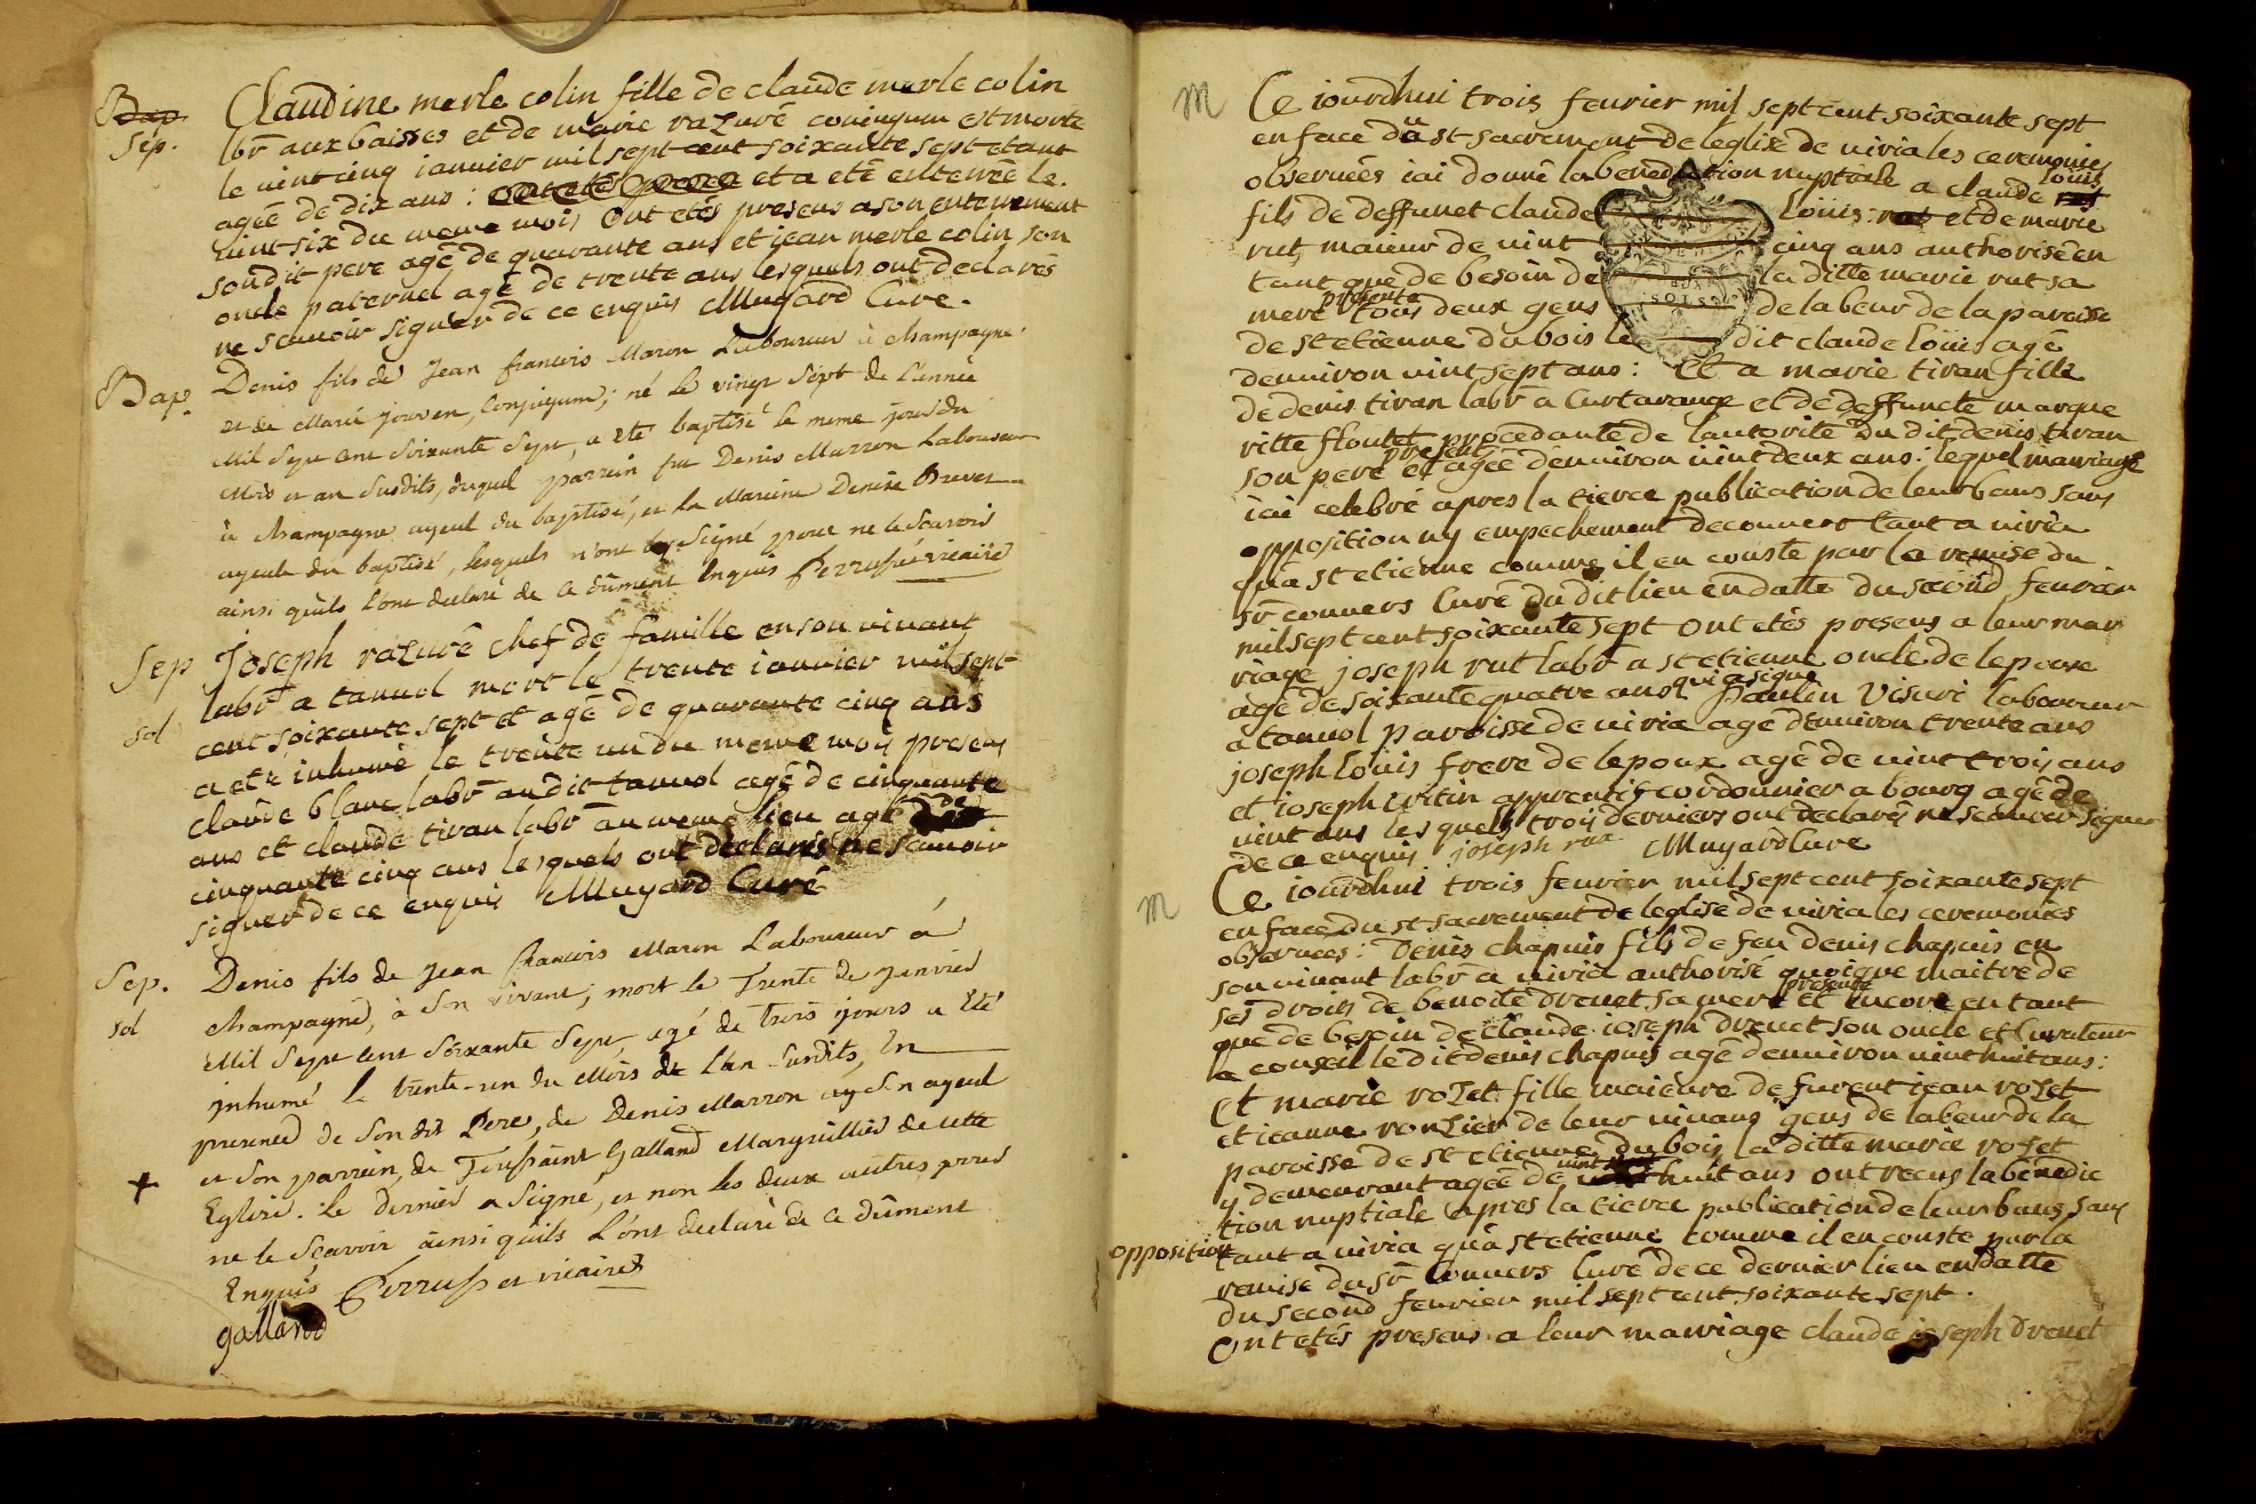 Bap
Sep.
Claudine merle colin fille de claude merle colin
lbr aux baisses et de marie razuré coniugum est morte
le vint cinq ianvier mil sept cent soixante sept etant
agée de dix ans : et a eté enterrée le
vint six du meme mois ont etés presens a son enterrement
son dit pere agé de quarante ans et iean merle colin son
oncle paternel agé de trente ans lesquels ont declarés
ne scavoir signer de ce enquis Muyard Curé.
Bap.
Denis fils de Jean francois Maron Laboureur à Champagne
et de Marie jouven, Conjugum; né le vingt Sept de L'année
Mil Sept Cent Soixante Sept, a eté baptisé le meme jour du
Mois et an Susdits, duquel parrein fut Denis Marron Laboureur
à Champagne ayeul du baptisé, et la Mareine Denise Brevet
ayeule du baptisé, lesquels n'ont Signé pour ne le Scavoir
ainsi qu'ils L'ont declaré de ce dûment Enquis Perruset vicaire
Sep
sol
Joseph razuré chef de famille en son vivant
labr a tanvol mort le trente ianvier mil sept
cent soixante sept et agé de quarante cinq ans
a eté inhumé le trente un du meme mois presens
claude blanc labr au dit tanvol agé de cinquante
ans et claude tiran labr au meme lieu agé de
cinquante cinq ans lesquels ont declarés ne scavoir
signer de ce enquis Muyard Curé
Sep.
sol
Denis fils de Jean francois Maron Laboureur à
Champagne, à Son vivant; mort le Trente de Janvier
Mil Sept Cent Soixante Sept, agé de trois jours a Eté
inhumé le trente-un du Mois de L'an Susdits, En
presence de Son dit Pere, de Denis Marron Son ayeul
et Son parrein, de Toussaint Galland Marguillier de cette
Eglise. Le dernier a Signé, et non les deux autres pour
ne le Sçavoir ainsi qu'ils L'ont declaré de ce dûment
Enquis Perruset vicaire
galland
M
Ce iourdhui trois fevrier mil sept cent soixante sept
en face du st sacrement de leglise de viria les ceremonies
observées iai donné la benediction nuptiale a claude loüis
fils de deffunct claude loüis: et de marie
rut, maieur de vint cinq ans authorisé en
tant que de besoin de la ditte marie rut sa
mere presente tous deux gens de labeur de la paroisse
de st etienne du bois le dit claude loüis agé
denviron vint sept ans : Et a marie tiran fille
de denis tiran labr a Curtarange et de deffuncte margue
ritte floutet procedante de lautorité du dit denis tiran
son pere present et agée denviron vint deux ans : lequel marriage
iai celebré apres la tierce publication de leur bans sans
opposition ny empechement decouvert tant a viria
qu'a st etienne comme il en conste par la remise du
sr convers Curé du dit lieu en datte du second fevrier
mil sept cent soixante sept ont etés presens a leur mar
riage joseph rut labr a st etienne oncle de lepoux
agé de soixante quatre ans qui a signé Paulin Visuri laboureur
a tanvol paroisse de viria agé denviron trente ans
joseph loüis frere de lepoux agé de vint trois ans
et ioseph apprentif cordonnier a bourg agé de
vint ans lesquels trois derniers ont declarés ne scavoir signer
de ce enquis joseph rut Muyard Curé
M
Ce iourdhui trois fevrier mil sept cent soixante sept
en face du st sacrement de leglise de viria les ceremonies
observées : Denis chapuis fils de feu denis chapuis en
son vivant labr a viria authorisé quoique maitre de
ses droits de benoite drevet sa mere presente et encore en tant
que de besoin de claude ioseph drevet son oncle et Curateur
a conseil le dit denis chapuis agé denviron vint huit ans :
Et marie rozet fille maieure de furent iean rozet
et ieanne ronzier de leur vivans gens de labeur de la
paroisse de st etienne du bois la ditte marie rozet
y demeurant agée de vint huit ans ont receus la benedic
tion nuptiale apres la tierce publication de leur bans sans
opposition tant a viria qu'a st etienne comme il en conste par la
remise du sr Convers Curé de ce dernier lieu en datte
du second fevrier mil sept cent soixante sept.
Ont etés presens a leur marriage claude ioseph drevet